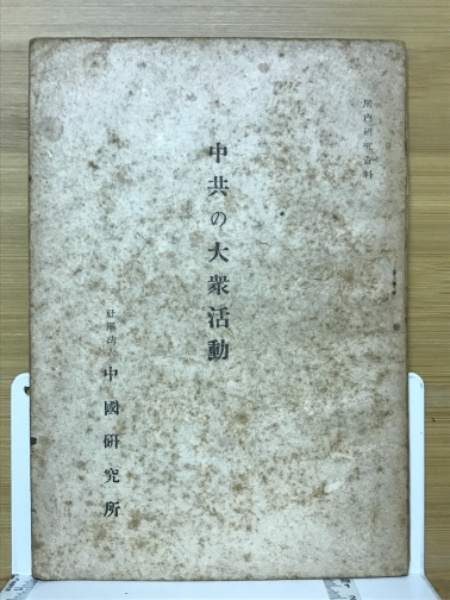 所内研究資料
中共の大衆活動
社團法人 中國研究所